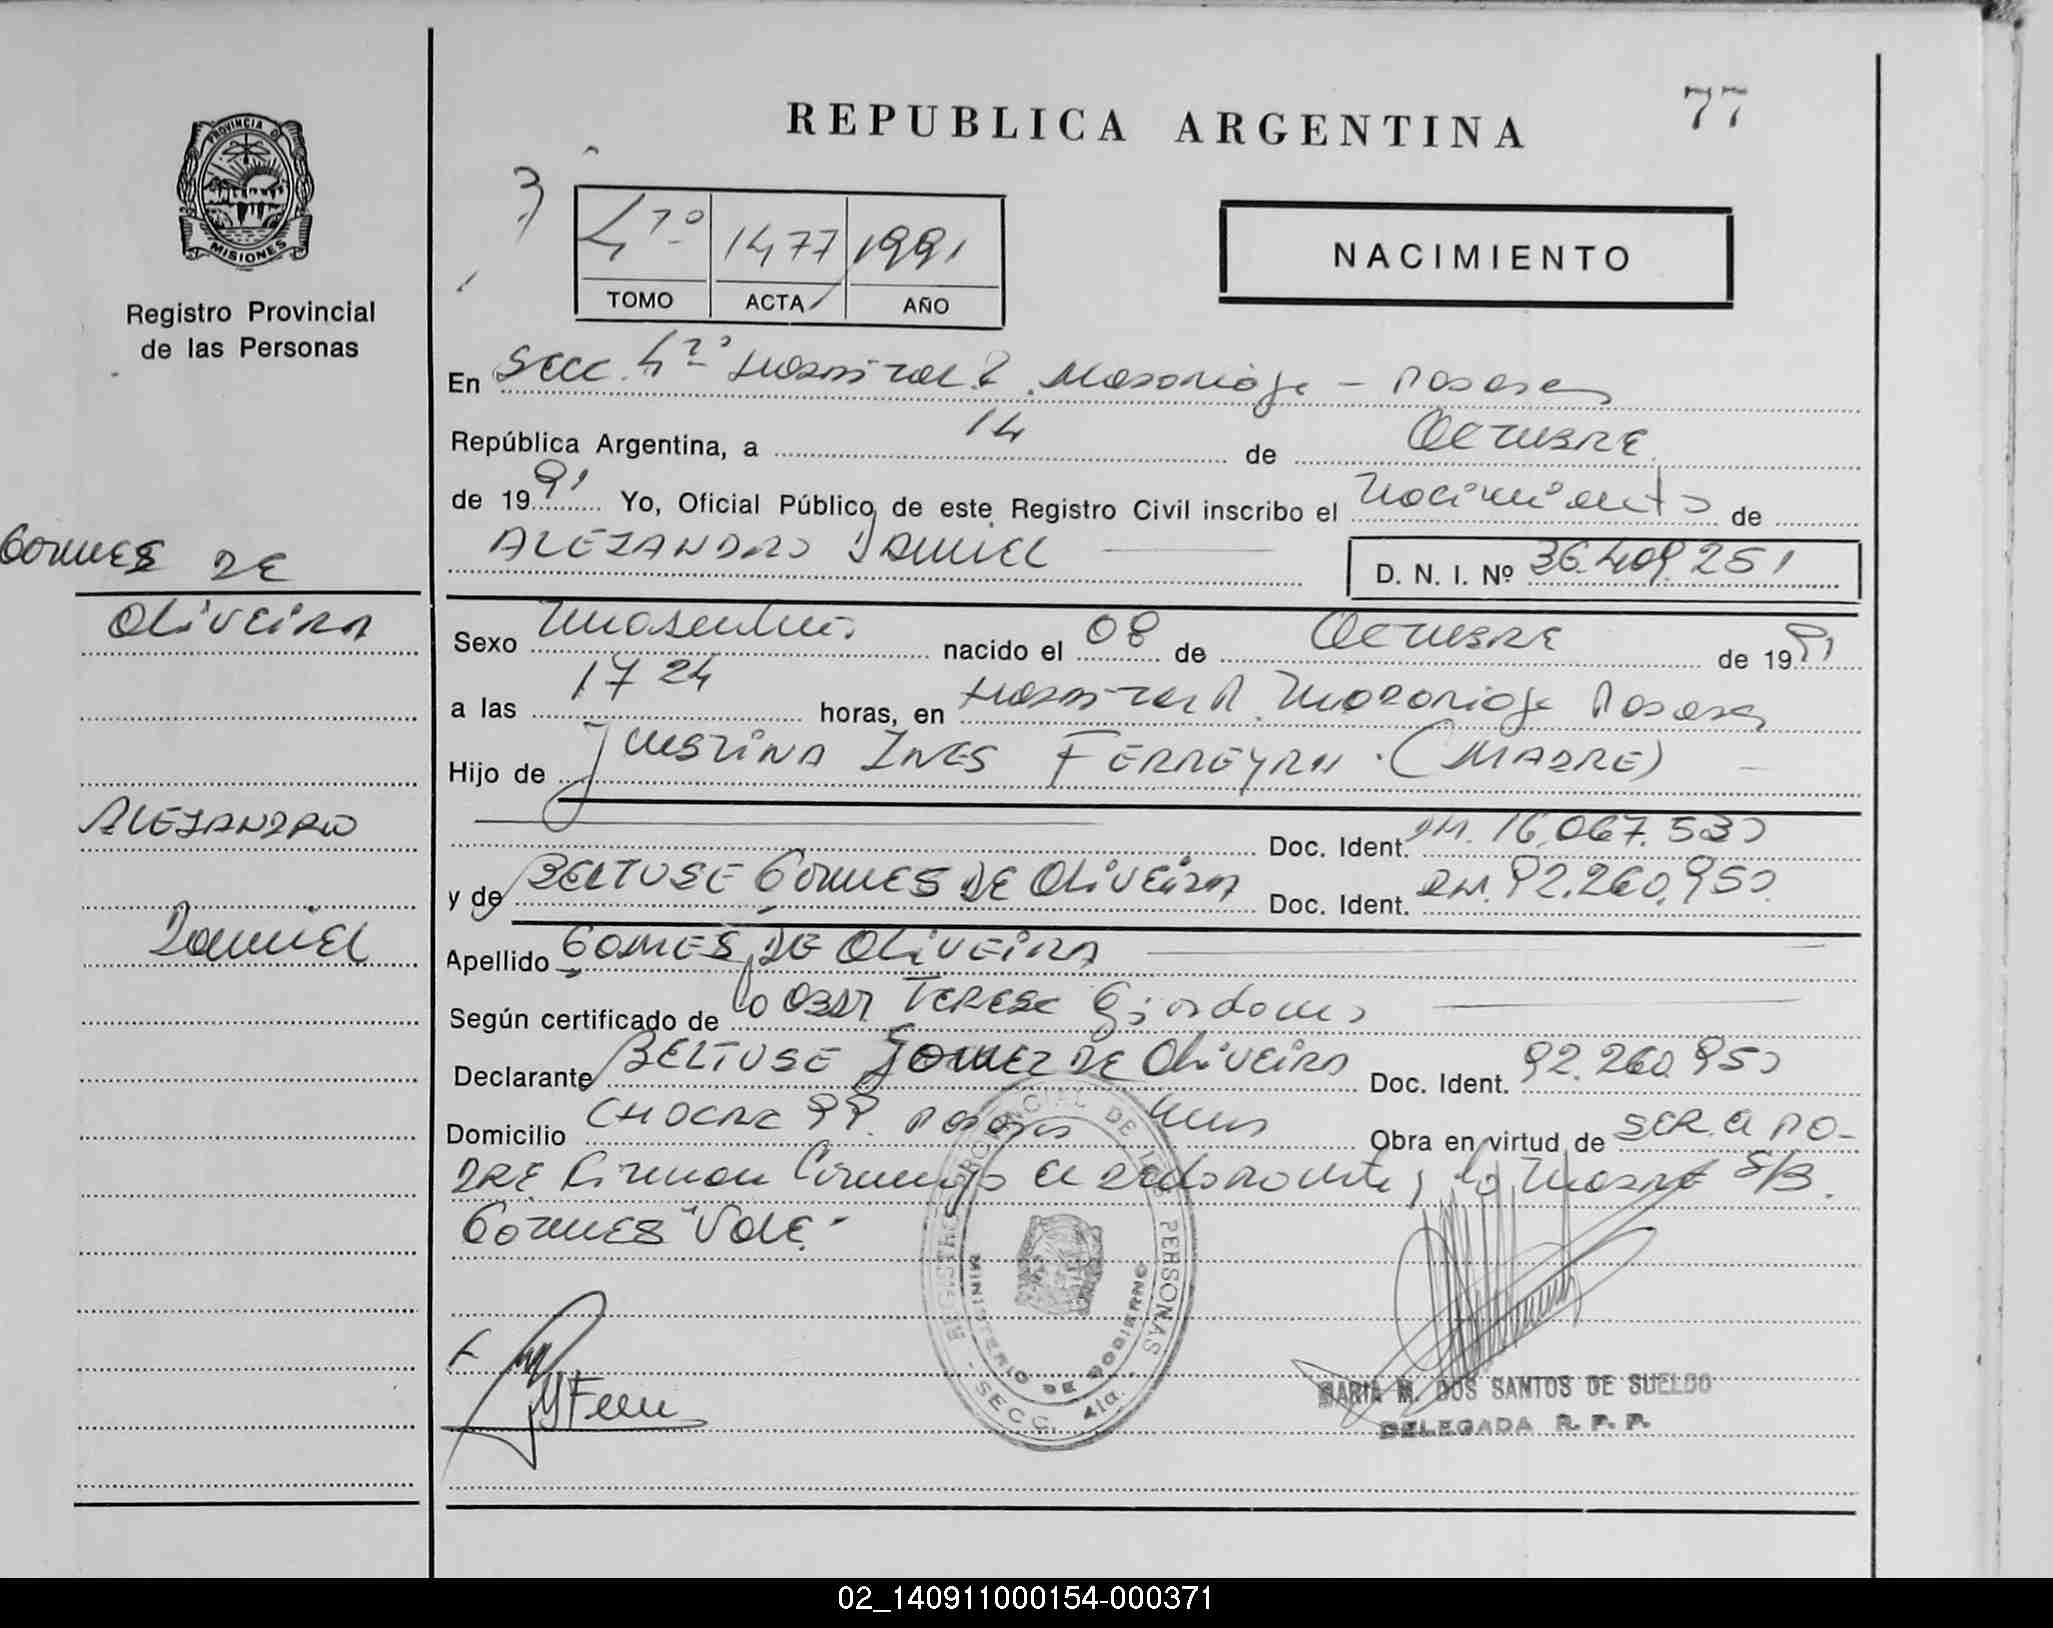 REPUBLICA ARGENTINA
77
PROVINCIA D
MISIONES
Registro Provincial
de las Personas
4º 1477 1991
TOMO ACTA AÑO
NACIMIENTO
En Secc. 4º Hospital R. Madariaga - Posadas
República Argentina, a 14 de Octubre
de 1991 Yo, Oficial Público de este Registro Civil inscribo el nacimiento de
ALEJANDRO DANIEL
D. N. I. Nº 36.409.251
GOMES DE
OLIVEIRA
ALEJANDRO
DANIEL
Sexo Masculino nacido el 08 de Octubre de 1991
a las 17 24 horas, en Hospital R. Madariaga Posadas
Hijo de JUSTINA INES FERREYRA. (MADRE)
Doc. Ident. DNI. 16.067.530
y de BELTUSE GOMES DE OLIVEIRA Doc. Ident. DNI. 92.260.950
Apellido GOMES DE OLIVEIRA
Según certificado de la Obst TERESA Giordano
Declarante BELTUSE GOMEZ DE OLIVEIRA Doc. Ident. 92.260.950
Domicilio CHACRA 99. Posadas Mnes Obra en virtud de SER el PA-
DRE Firman Conmigo el declarante y la Madre S/B.
GOMES "Vale"
REGISTRO PROVINCIAL DE LAS PERSONAS
MINISTERIO DE GOBIERNO
- SECC. 4ta. -
MARIA M. DOS SANTOS DE SUELDO
DELEGADA R. P. P.
02_140911000154-000371